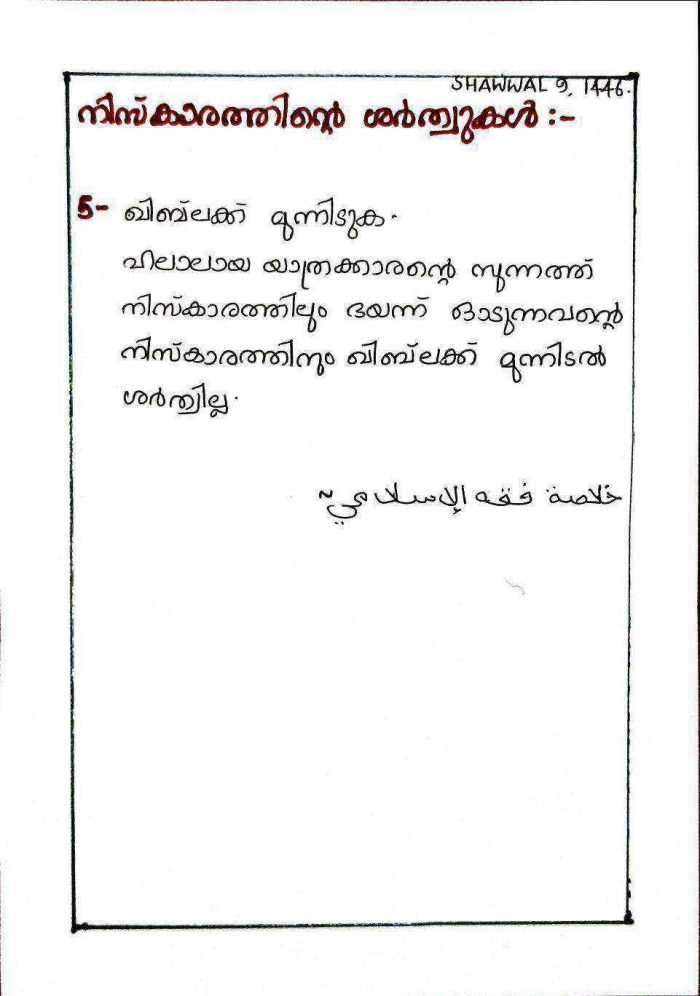 SHAWWAL 9, 1446.
നിസ്കാരത്തിന്റെ ശർത്വുകൾ :-
5- ഖിബ്‌ലക്ക് മുന്നിടുക.
ഹലാലായ യാത്രക്കാരന്റെ സുന്നത്ത്
നിസ്കാരത്തിലും ഭയന്ന് ഓടുന്നവന്റെ
നിസ്കാരത്തിനും ഖിബ്‌ലക്ക് മുന്നിടൽ
ശർത്വില്ല.
خلاصة فقه الإسلامي~